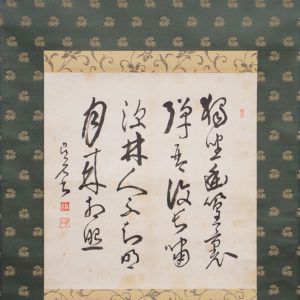 獨坐幽篁裏
彈琴復長嘯
深林人不知明
月来相照